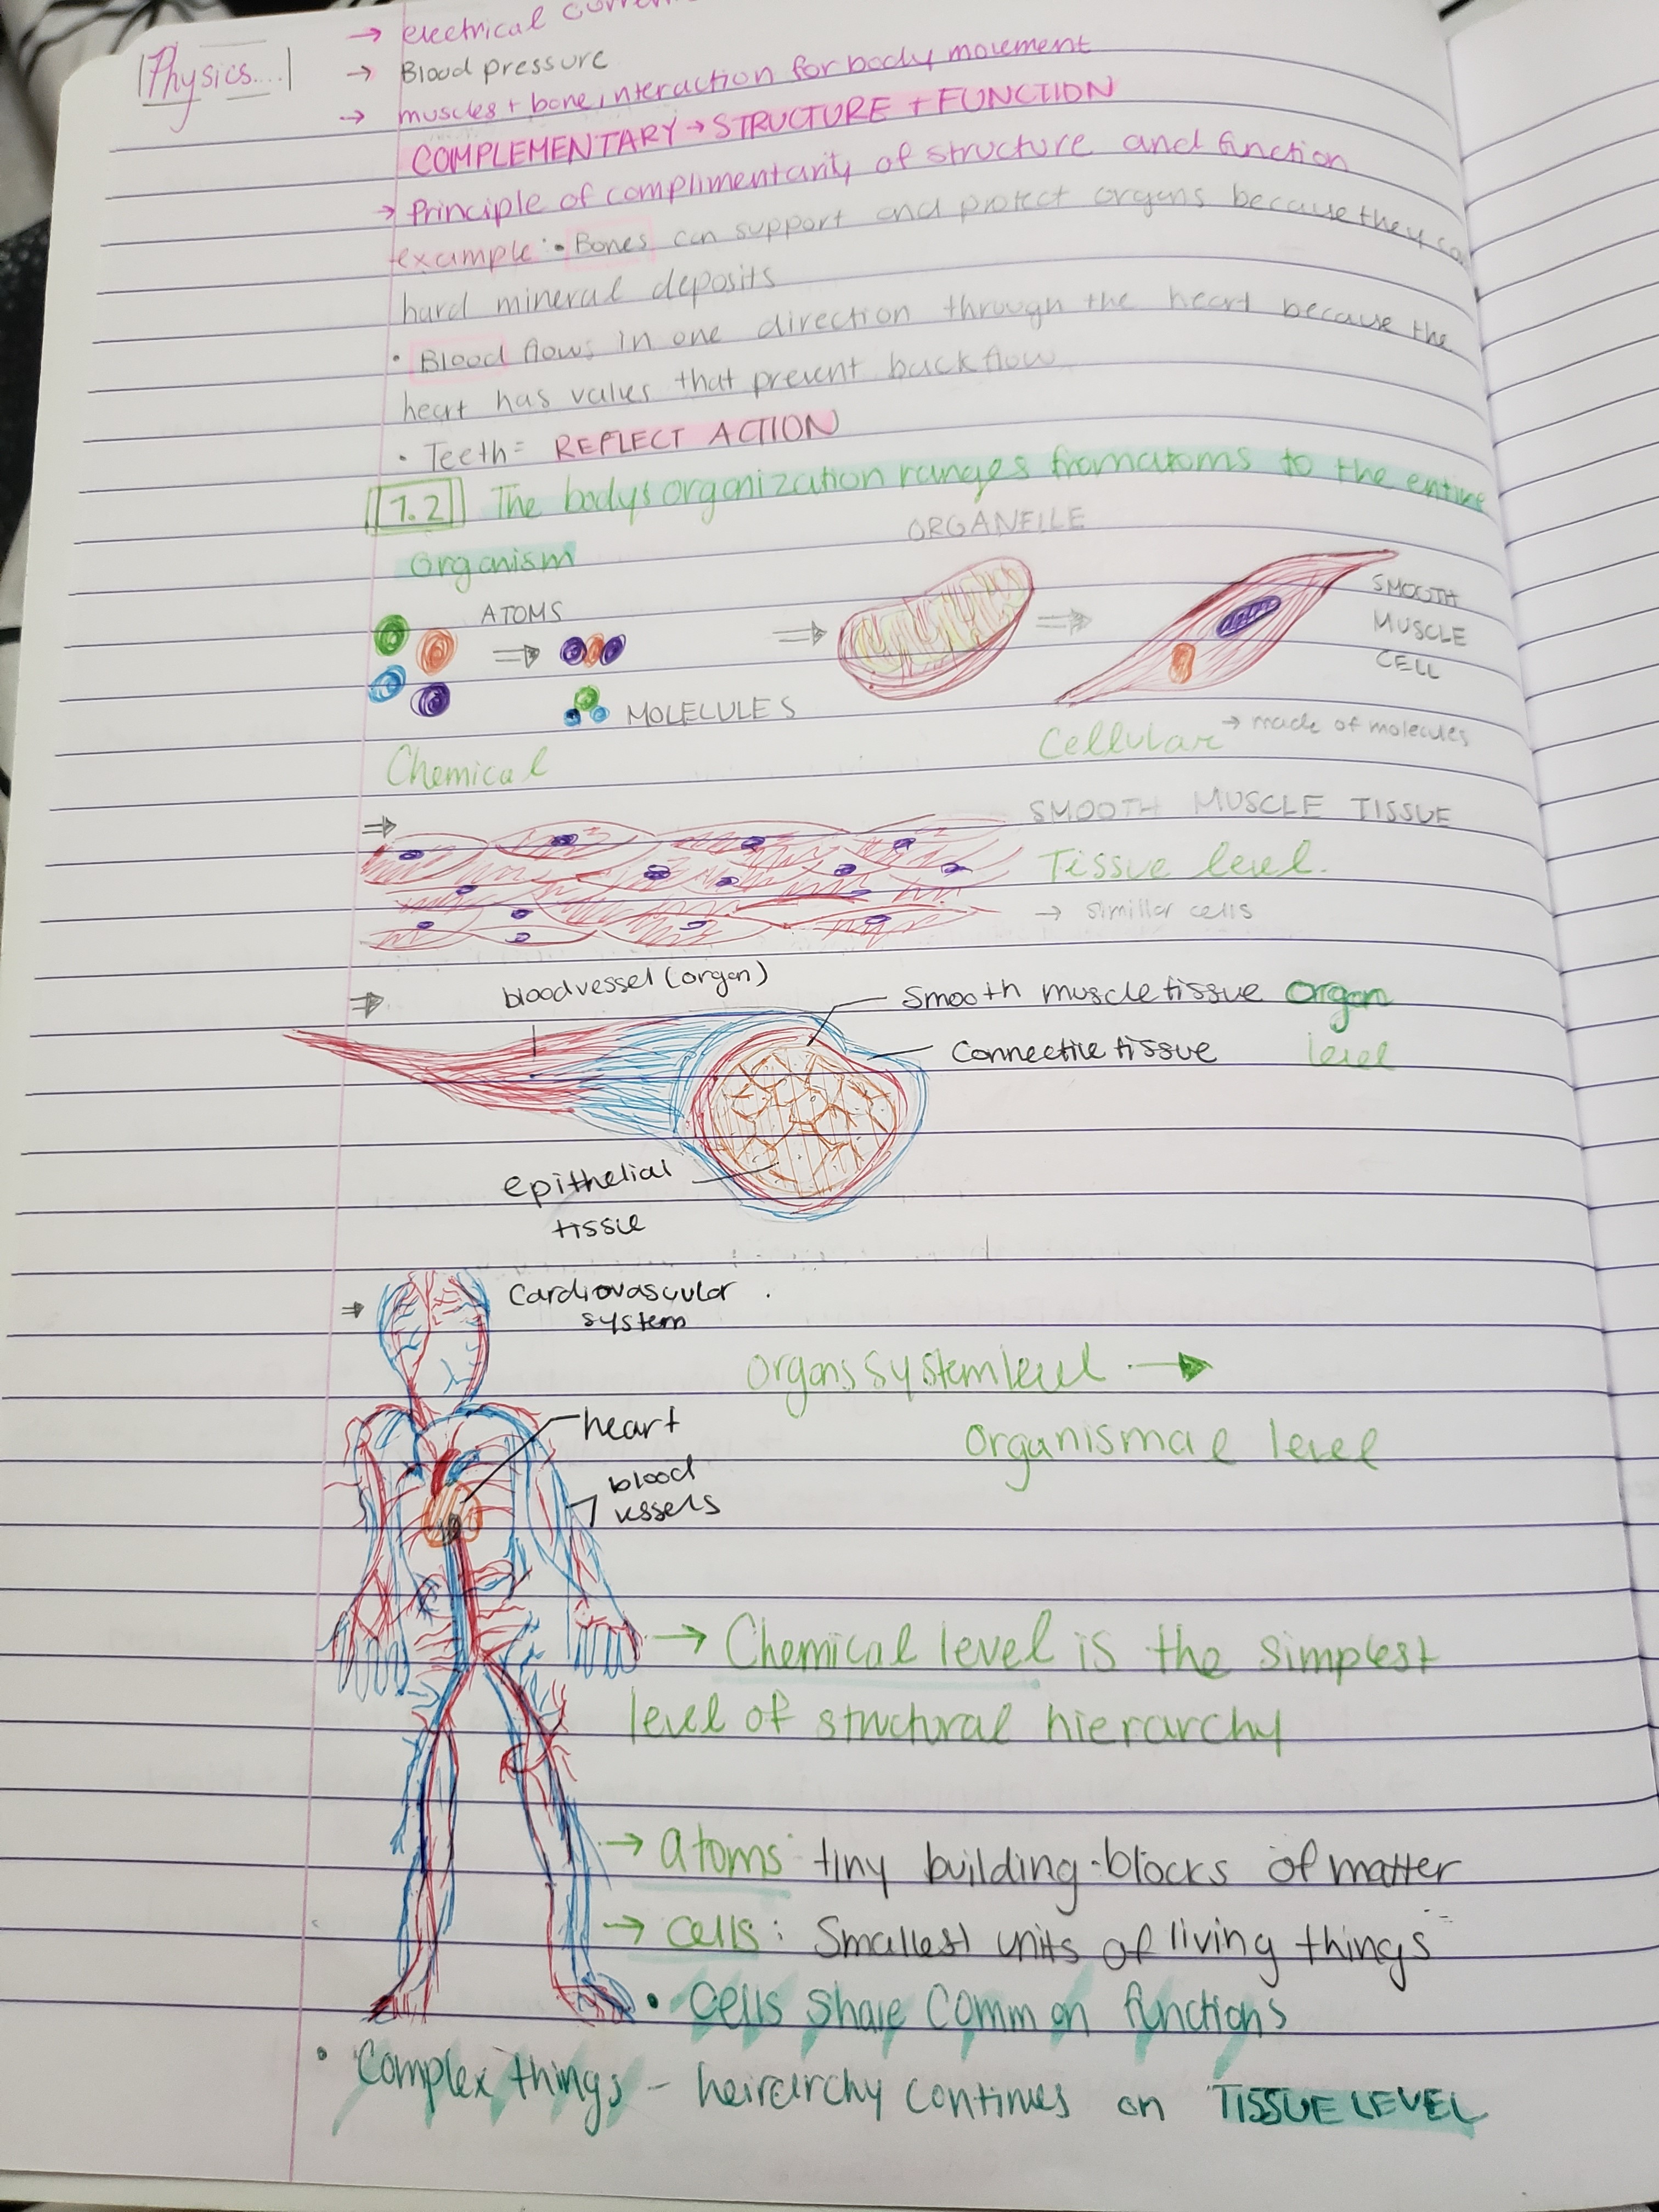 Physics....
→ electrical
→ Blood pressure
→ muscles + bone interaction for body movement
COMPLEMENTARY → STRUCTURE + FUNCTION
→ Principle of complimentarity of structure and function
example: • Bones can support and protect organs because they
hard mineral deposits
• Blood flows in one direction through the heart because the
heart has valves that prevent backflow
• Teeth = REFLECT ACTION
1.2 The bodys organization ranges from atoms to the entire
Organism
ORGANELLE
ATOMS
MOLECULES
SMOOTH
MUSCLE
CELL
Chemical
Cellular → made of molecules
SMOOTH MUSCLE TISSUE
Tissue level.
→ simillar cells
blood vessel (organ)
Smooth muscle tissue
organ
level
Connective tissue
epithelial
tissue
Cardiovascular
system
organs system level →
organismal level
heart
blood
vessels
→ Chemical level is the simplest
level of structural hierarchy
→ atoms tiny building-blocks of matter
→ cells: Smallest units of living things
• Cells share common functions
• Complex things - heirarchy continues on TISSUE LEVEL